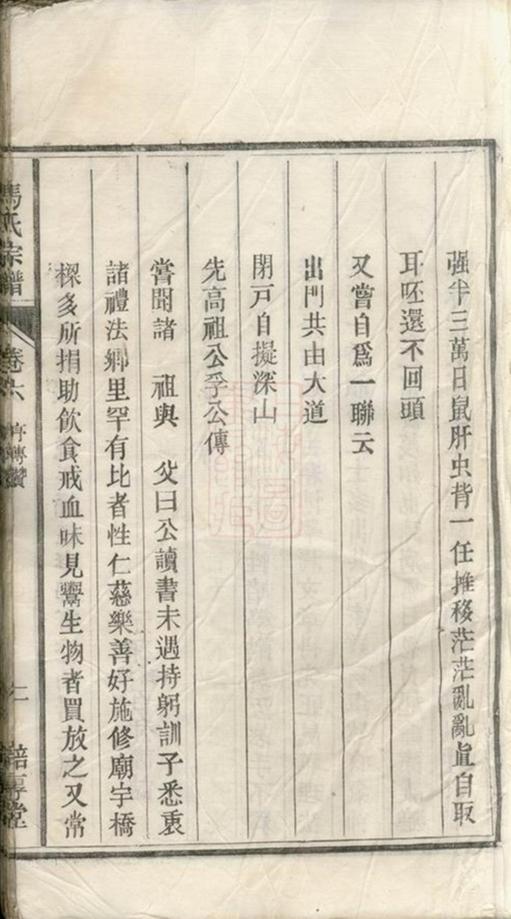 强半三萬日鼠肝虫背一任推移茫茫亂亂眞自取
耳呸還不回頭
又嘗自爲一聯云
出門共由大道
閉戸自擬深山
先高祖公孚公傳
嘗聞諸 祖與 父曰公讀書未遇持躬訓子悉衷
諸禮法鄉里罕有比者性仁慈樂善好施修廟宇橋
樑多所捐助飲食戒血味見鬻生物者買放之又常
馬氏宗譜 卷六 序傳贊